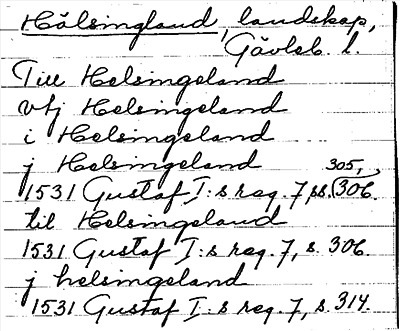 Hälsingland, landskap,
Gävleb. l.
Till Helsingeland
vtj Helsingeland
i Helsingeland
j Helsingeland
1531 Gustaf I:s reg. 7, ss. 305, 306.
til Helsingeland
1531 Gustaf I:s reg. 7, s. 306.
j helsingeland
1531 Gustaf I:s reg. 7, s. 314.